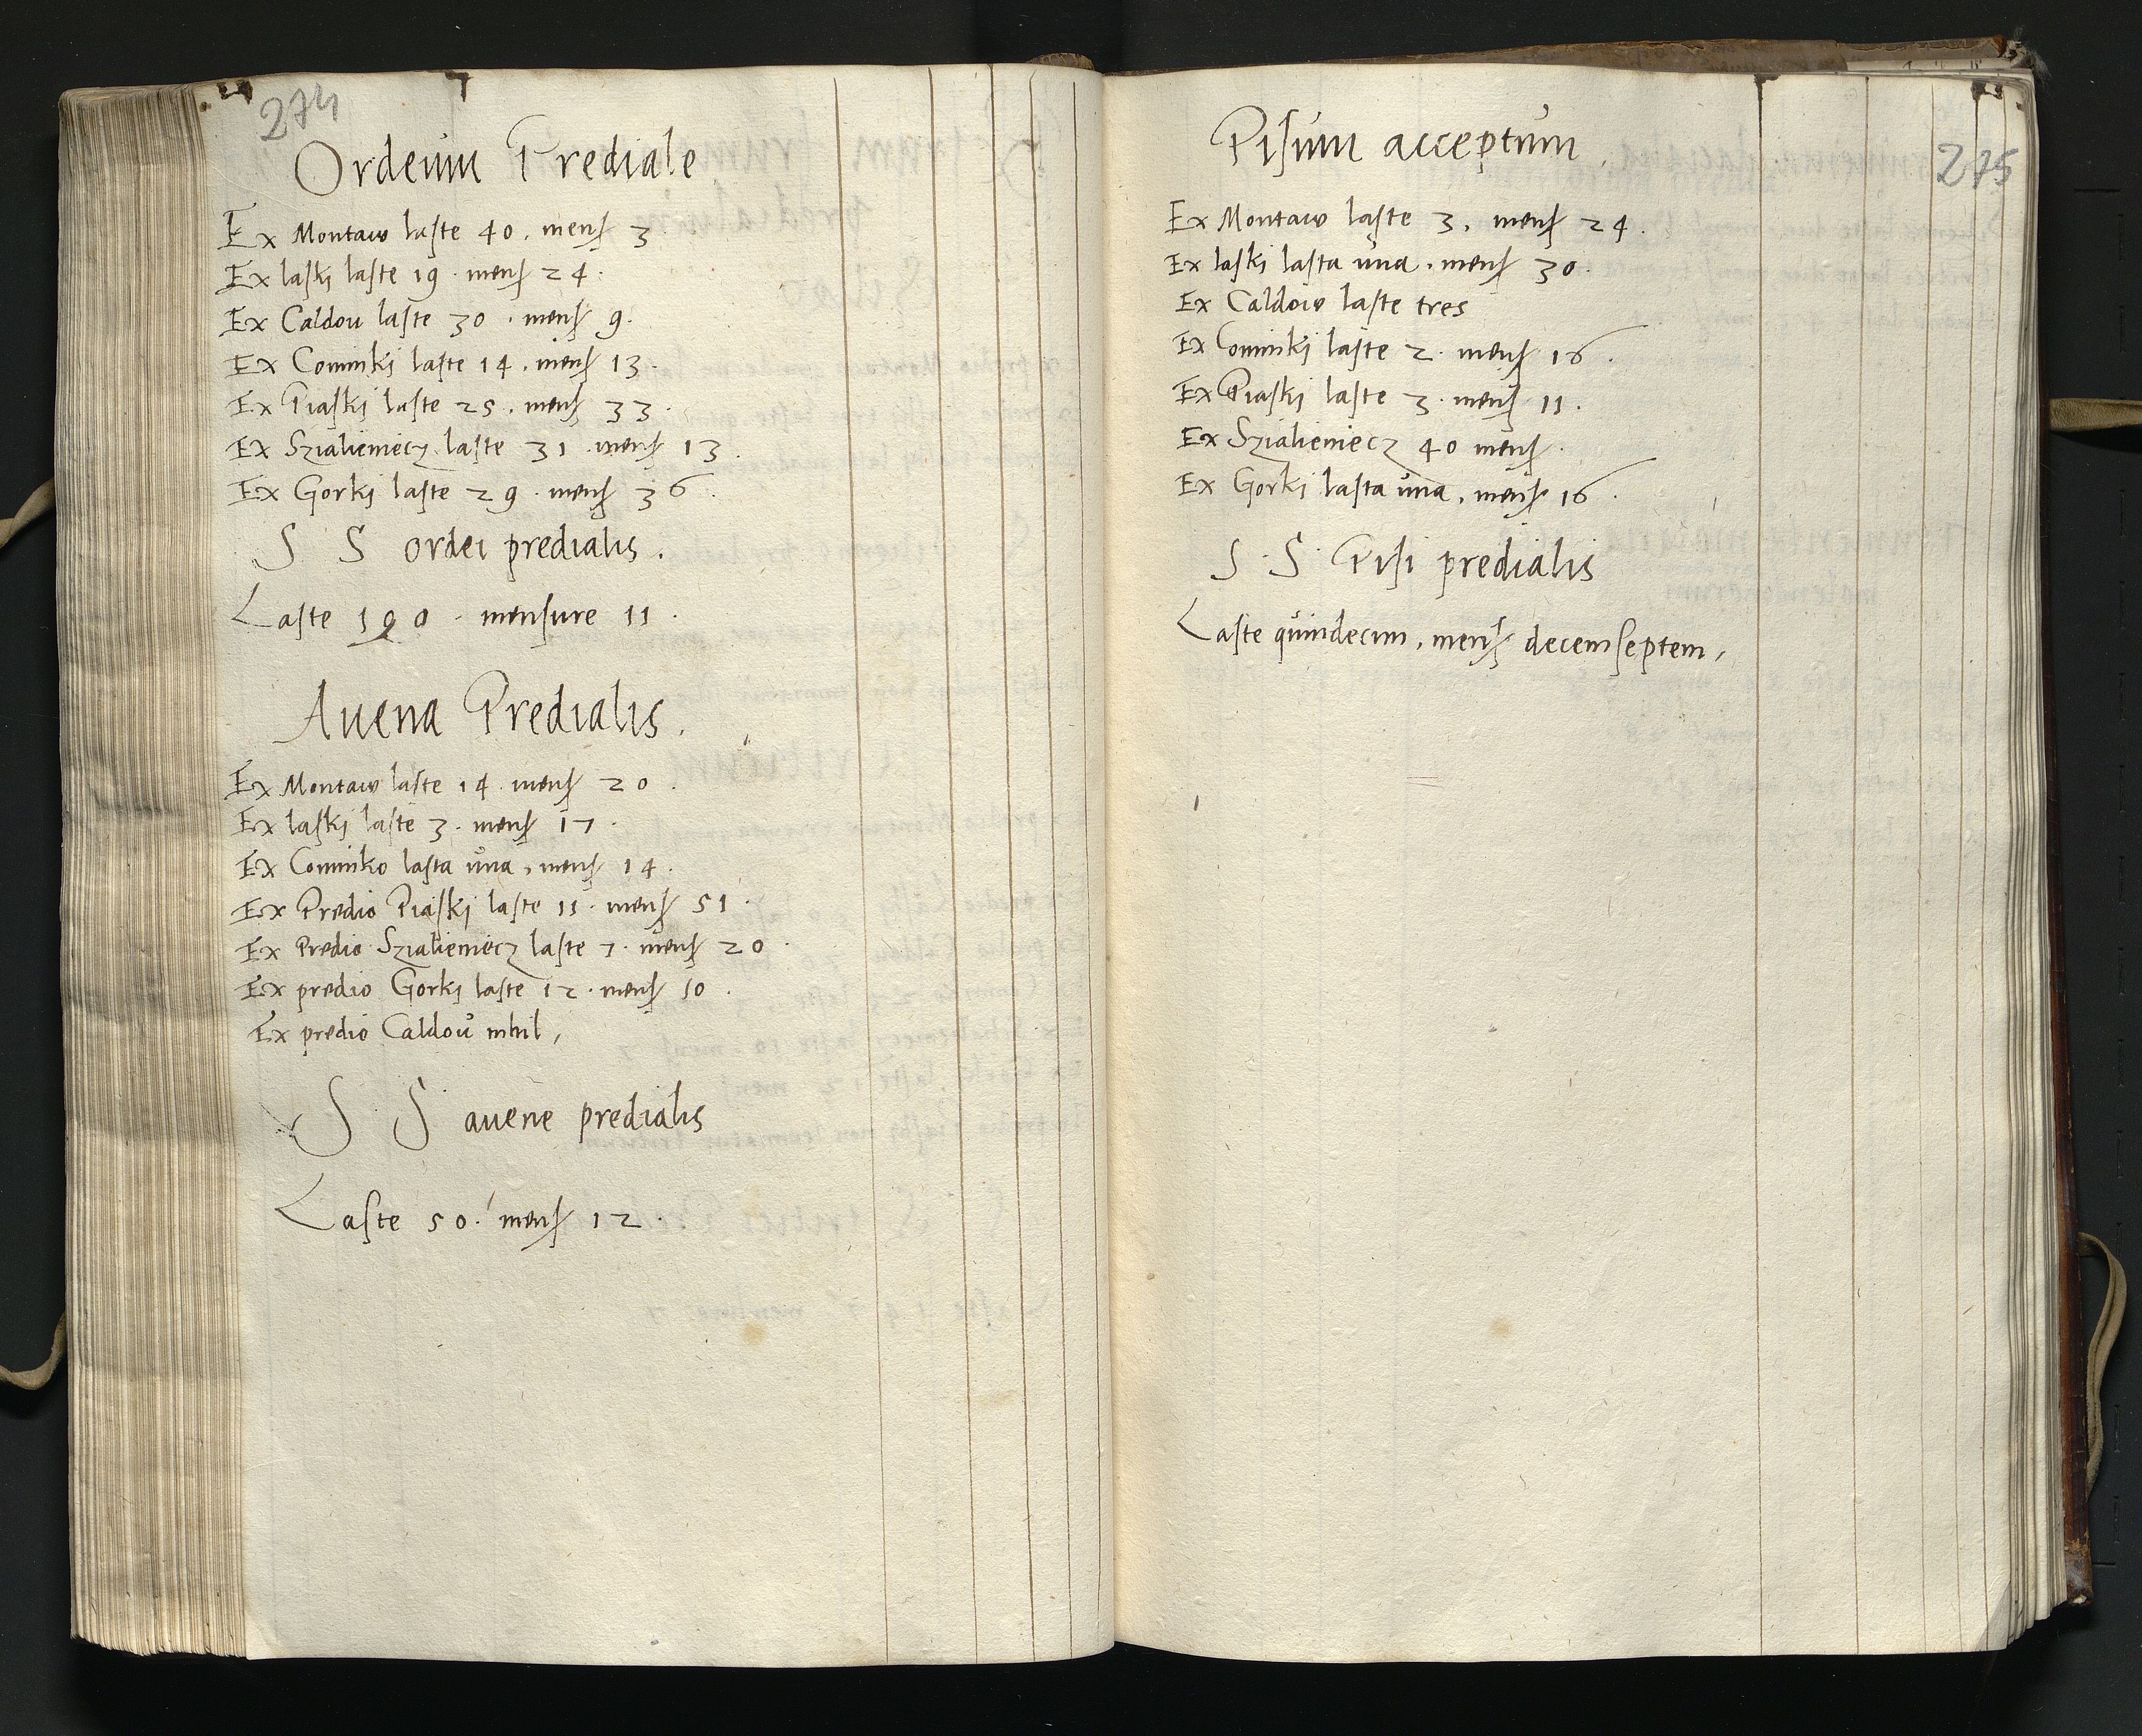 274
Ordeum Prediale
Ex Montaw laste 40. mensſ 3
Ex laski laste 19. mensſ 24.
Ex Caldou laste 30. mensſ 9.
Ex Cominki laste 14. mensſ 13.
Ex Piaski laste 25. mensſ 33.
Ex Szialieniecz laste 31. mensſ 13.
Ex Gorki laste 29. mensſ 36.
S S ordei predialis.
Laste 190. mensure 11.
Auena Predialis.
Ex Montaw laste 14. mensſ 20.
Ex laski laste 3. mensſ 17.
Ex Cominko lasta una, mensſ 14.
Ex Predio Piaski laste 11. mensſ 51.
Ex Predio Szialieniecz laste 7. mensſ 20.
Ex predio Gorki laste 12. mensſ 10.
Ex predio Caldou nihil,
S S auene predialis
Laste 50. mensſ 12.
275
Pisum acceptum.
Ex Montaw laste 3. mensſ 24.
Ex laski lasta una, mensſ 30.
Ex Caldow laste tres
Ex Cominki laste 2. mensſ 16.
Ex Piaski laste 3. mensſ 11.
Ex Szialieniecz 40 mensſ.
Ex Gorki lasta una, mensſ 16.
S. S. Pisi predialis
Laste quindecim, mensſ decemseptem,